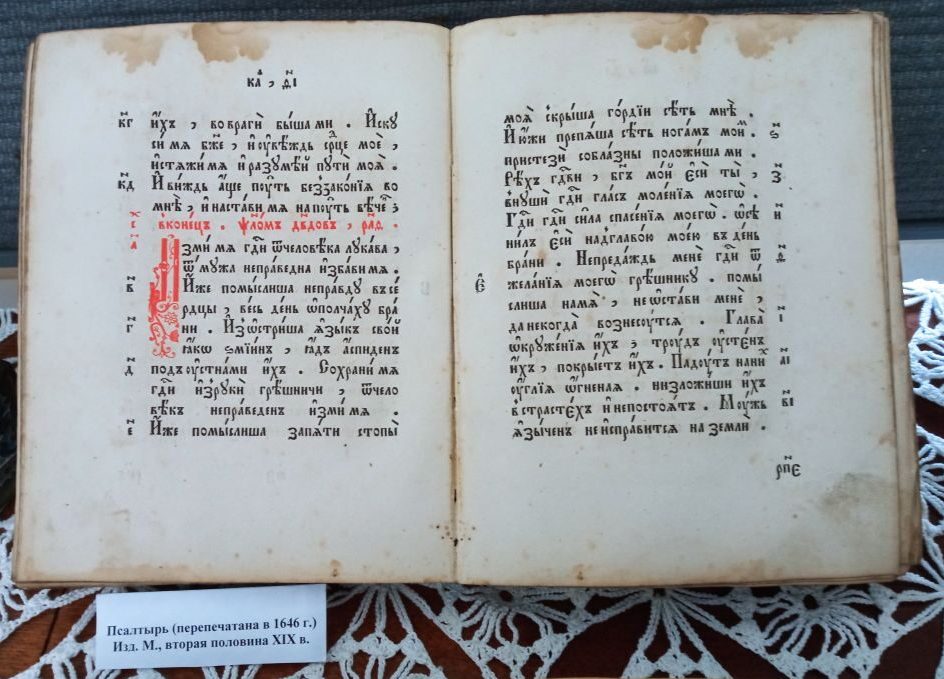 ка҃ , ѳ҃і
кг҃ и҆́хъ , во враги̑ бы́ша ми . И҆ску
си́ мя бж҃е , и҆ ᲂу҆вѣ́ждь ср҃це моѐ ,
и҆стяжи́ мя и҆ разꙋмѣ́й пꙋти̑ моя̑ .
кд҃ И҆ ви́ждь а҆́ще пꙋ́ть беззако́нїя во
мнѣ̀ , и҆ наста́ви мя на пꙋ́ть вѣ́че
в конє́цъ . ѱл҃о́мъ дв҃довъ , рл҃ѳ
а҃ И҆зми́ мя гд҃и ѿ человѣ́ка лꙋка́ва ,
ѿ мꙋ́жа непра́ведна и҆зба́ви мя .
в҃ И҆́же помы́слиша непра́вдꙋ въ се́
рдцы , ве́сь де́нь ѡ҆полча́хꙋ бра́
г҃ ни . И҆зѡстри́ша я҆зы́къ сво́й
ꙗ҆́кѡ ѕмїи́нъ , ꙗ҆́дъ а҆́спиденъ
д҃ под̾ ᲂу҆стна́ми и҆́хъ . Сохрани́ мя
гд҃и и҆з̾ рꙋки̑ грѣ́шничи , ѿ чело
вѣ́къ непра́веденъ и҆зми́ мя .
е҃ И҆́же помы́слиша запя́ти стопы̀
моя̑ скры́ша го́рдїи сѣ́ть мнѣ̀ .
И҆ ю҆́жи препя́ша сѣ́ть нога́мъ мои̑ ѕ҃
пристезѝ собла́зны положи́ша ми .
Рѣ́хъ гд҃ви , бг҃ъ мо́й є҆сѝ ты̀ , з҃
внꙋшѝ гд҃и гла́съ моле́нїя моегѡ̀ .
Гд҃и гд҃и си́ла спасе́нїя моегѡ̀ . ѡ҆сѣ и҃
ни́лъ є҆сѝ над̾ главо́ю мое́ю въ де́нь
бра́ни . Не преда́ждь менѐ гд҃и ѿ ѳ҃
жела́нїя моегѡ̀ грѣ́шникꙋ . помы́
слиша на мя̀ , не ѡ҆ста́ви менѐ ,
да некогда̀ вознесꙋ́тся . Глава̀ і҃
ѡ҆крꙋже́нїя и҆́хъ , трꙋ́дъ ᲂу҆сте́нъ
и҆́хъ , покры́етъ и҆́хъ . Падꙋ́тъ на ни́ аі҃
ᲂу҆́глїя ѻ҆́гненая . низложи́ши и҆́хъ
в страсте́хъ и҆ не постоя́тъ . Мꙋ́жъ ві҃
я҆зы́ченъ не и҆спра́вится на землѝ .
рп҃є
Псалтырь (перепечатана в 1646 г.)
Изд. М., вторая половина XIX в.